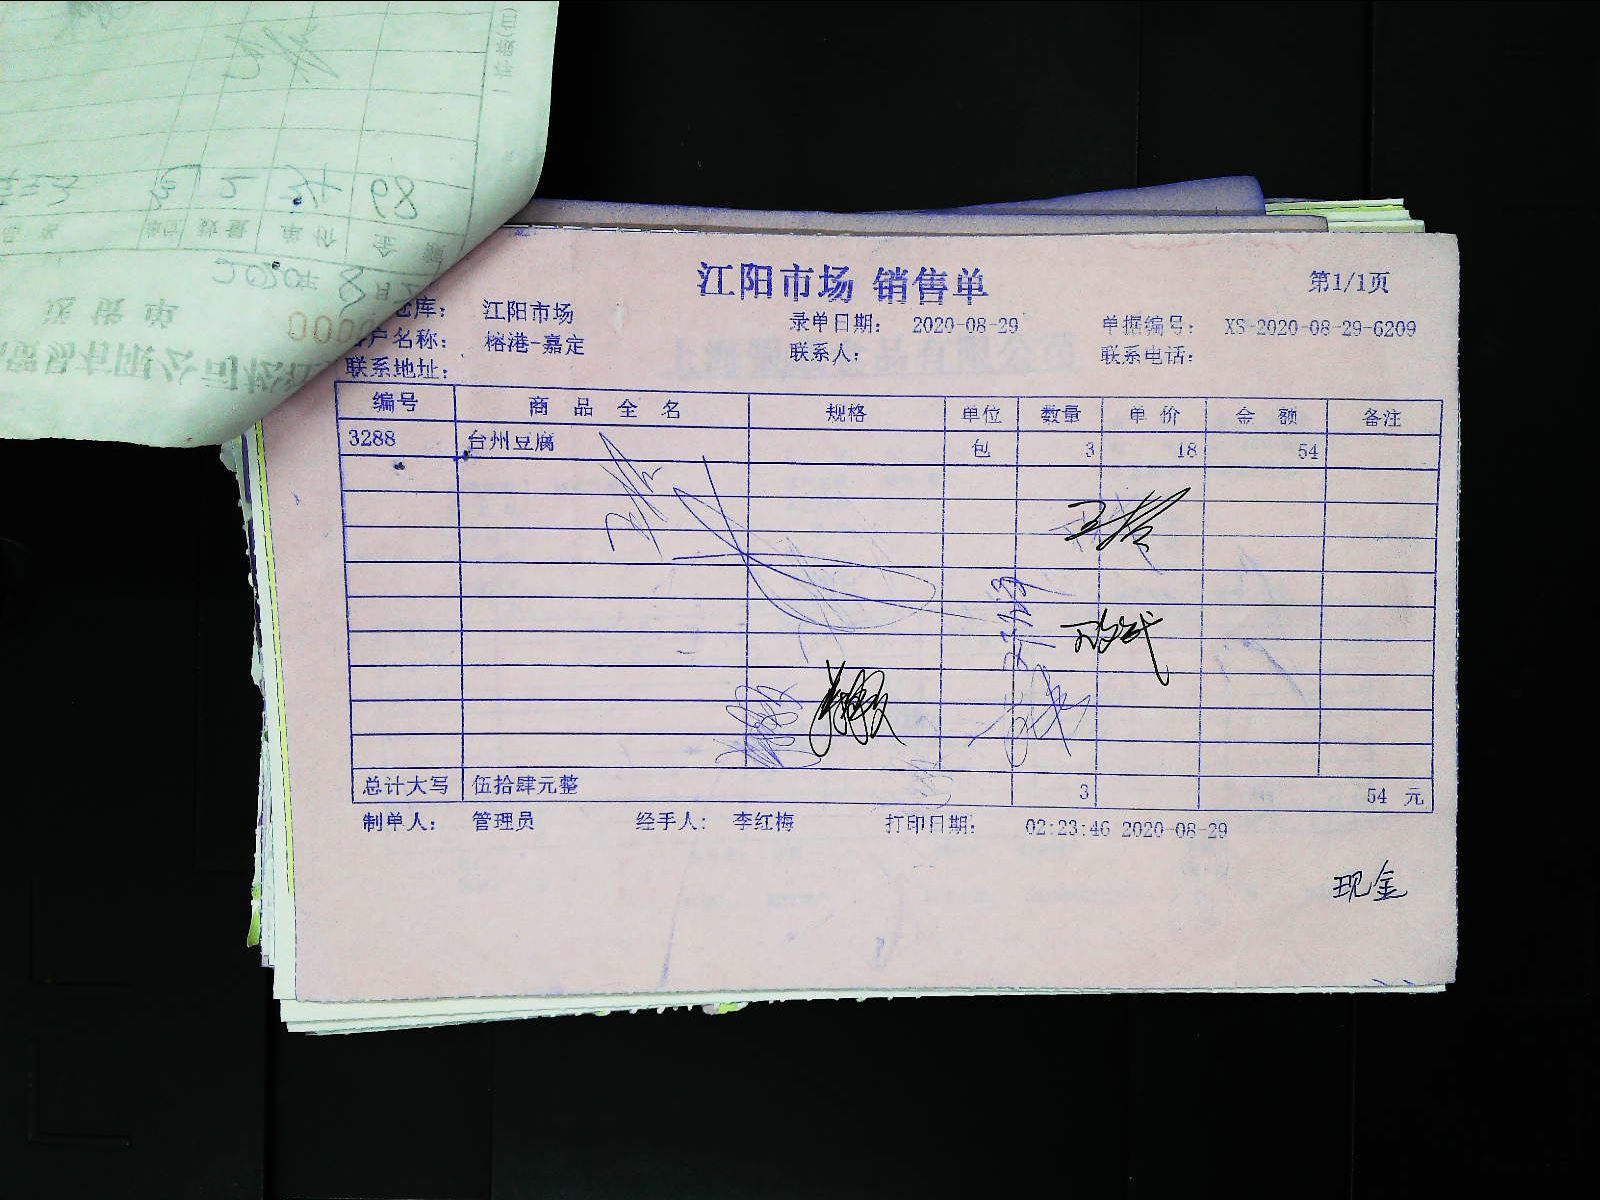 江阳市场 销售单
第1/1页
仓库： 江阳市场 录单日期： 2020-08-29 单据编号： XS-2020-08-29-6209
客户名称： 榕港-嘉定 联系人： 联系电话：
联系地址：
编号 商品全名 规格 单位 数量 单价 金额 备注
3288 台州豆腐 包 3 18 54
总计大写 伍拾肆元整 3 54 元
制单人： 管理员 经手人： 李红梅 打印日期： 02:23:46 2020-08-29
现金